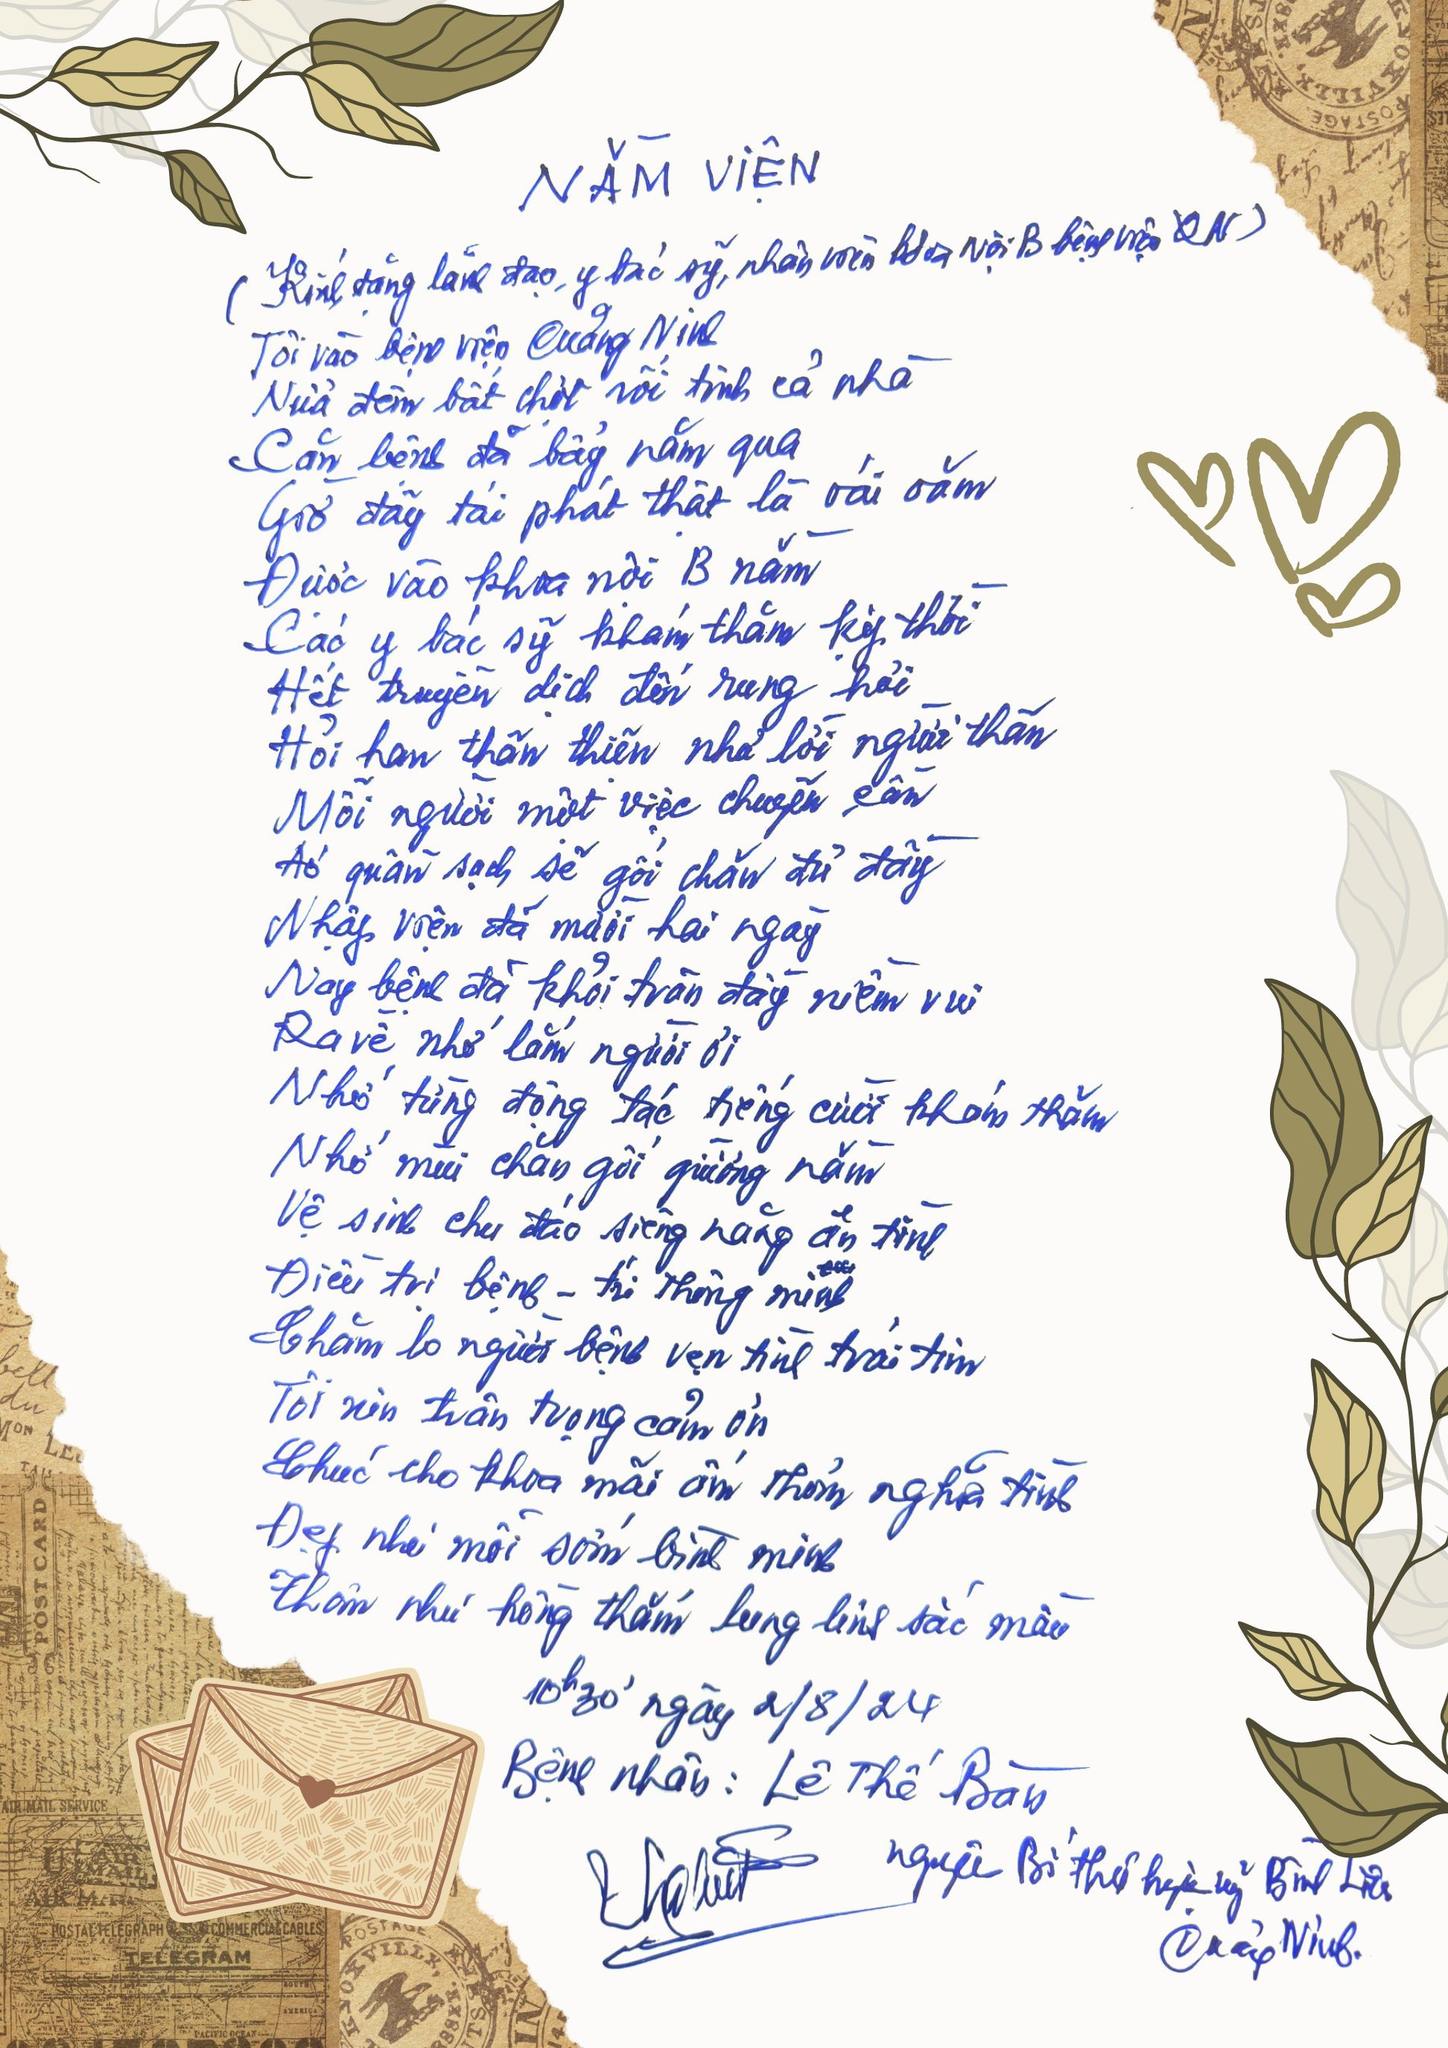 NẰM VIỆN
(Kính tặng lãnh đạo, y bác sỹ, nhân viên khoa Nội B bệnh viện QN)
Tôi vào bệnh viện Quảng Ninh
Nửa đêm bất chợt rối tinh cả nhà
Căn bệnh đã bảy năm qua
Giờ đây tái phát thật là oái oăm
Được vào khoa nội B nằm
Các y bác sỹ khám thăm kịp thời
Hết truyền dịch đến rung hơi
Hỏi han thân thiện như lời người thân
Mỗi người một việc chuyên cần
Áo quần sạch sẽ gối chăn đủ đầy
Nhập viện đã mười hai ngày
Nay bệnh đã khỏi tràn đầy niềm vui
Ra về nhớ lắm người ơi
Nhớ từng động tác tiếng cười khám thăm
Nhớ mùi chăn gối giường nằm
Vệ sinh chu đáo siêng năng ân tình
Điều trị bệnh - trí thông minh
Chăm lo người bệnh vẹn tình trái tim
Tôi xin trân trọng cảm ơn
Chúc cho khoa mãi ấm thơm nghĩa tình
Đẹp như mỗi sớm bình minh
Thơm như hồng thắm lung linh sắc màu
10h30' ngày 2/8/24
Bệnh nhân: Lê Thế Bàn
nguyên Bí thư huyện uỷ Bình Liêu
Quảng Ninh.
POSTCARD
AIR MAIL SERVICE
POSTAL TELEGRAPH COMMERCIAL CABLES
TELEGRAM
PACIFIC OCEAN
POSTAGE